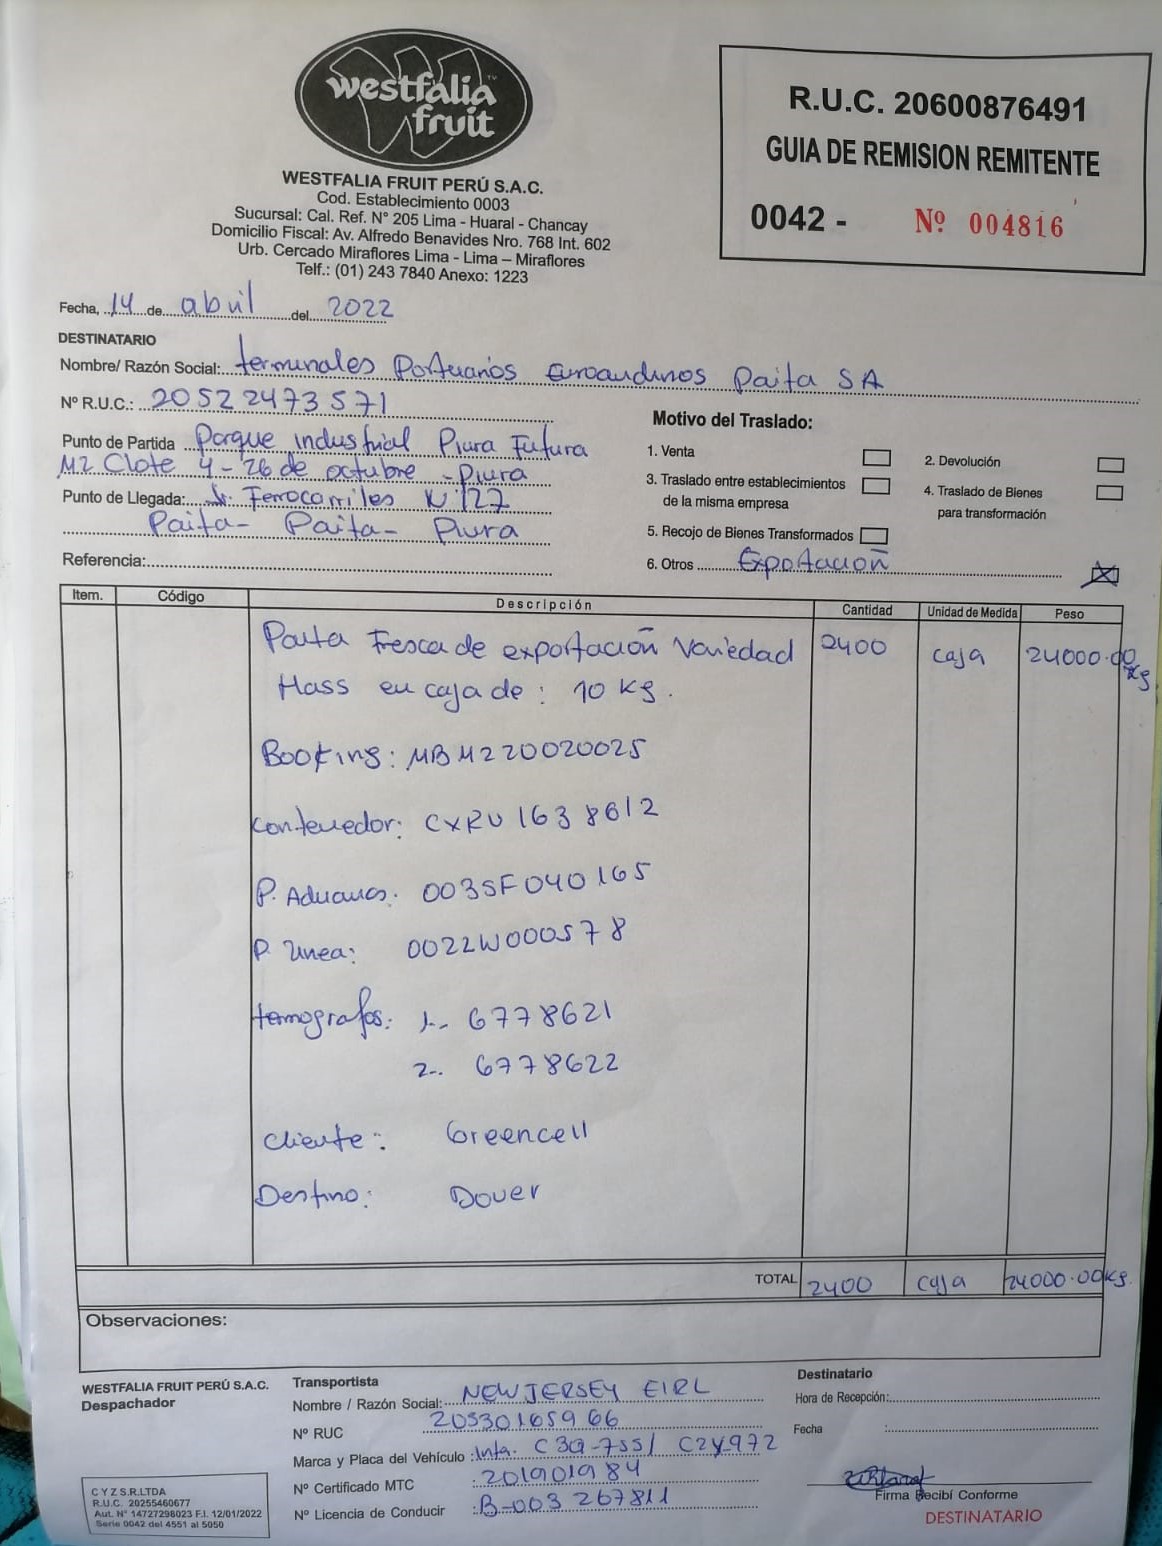 westfalia
fruit
WESTFALIA FRUIT PERÚ S.A.C.
Cod. Establecimiento 0003
Sucursal: Cal. Ref. N° 205 Lima - Huaral - Chancay
Domicilio Fiscal: Av. Alfredo Benavides Nro. 768 Int. 602
Urb. Cercado Miraflores Lima - Lima – Miraflores
Telf.: (01) 243 7840 Anexo: 1223
R.U.C. 20600876491
GUIA DE REMISION REMITENTE
0042 - Nº 004816
Fecha, 14 de abril del 2022
DESTINATARIO
Nombre/ Razón Social: terminales Portuarios Euroandinos Paita SA
Nº R.U.C.: 20522473571
Punto de Partida Parque industrial Piura Futura
MZ C lote 4 - 26 de octubre - Piura
Punto de Llegada: Ferrocarriles N 127
Paita - Paita - Piura
Referencia:
Motivo del Traslado:
1. Venta
2. Devolución
3. Traslado entre establecimientos
de la misma empresa
4. Traslado de Bienes
para transformación
5. Recojo de Bienes Transformados
6. Otros Exportación
Item. Código Descripción Cantidad Unidad de Medida Peso
Palta Fresca de exportación Variedad 2400 caja 24000.00 kg
Hass en caja de : 10 kg.
Booking: MBM220020025
Contenedor: CXRU 1638612
P. Aduanas: 003SF040165
P. Linea: 0022W000578
termografos: 1-. 6778621
2-. 6778622
Cliente: Greencell
Destino: Dover
TOTAL 2400 caja 24000.00 kg.
Observaciones:
WESTFALIA FRUIT PERÚ S.A.C.
Despachador
Transportista
Nombre / Razón Social: NEW JERSEY EIRL
Nº RUC 20530165966
Marca y Placa del Vehículo : Inta. C3Q-755/ C2Y972
Nº Certificado MTC : 201901984
Nº Licencia de Conducir : B-003267811
Destinatario
Hora de Recepción:
Fecha :
Firma Recibí Conforme
DESTINATARIO
C Y Z S.R.LTDA
R.U.C. 20255460677
Aut. N° 14727298023 F.I. 12/01/2022
Serie 0042 del 4551 al 5050